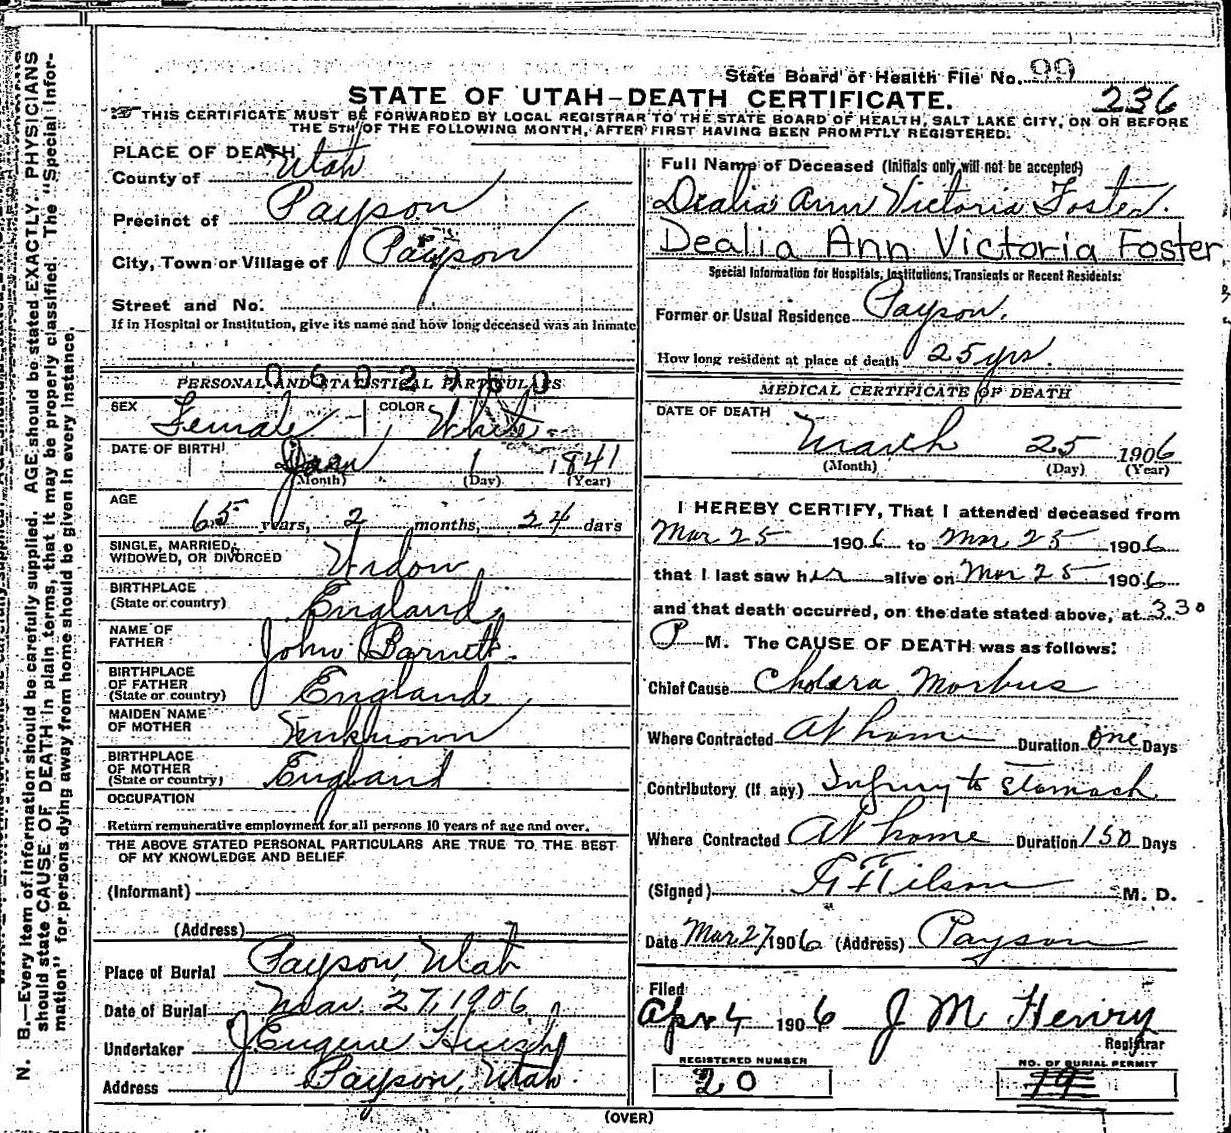 State Board of Health File No. 99
236
STATE OF UTAH-DEATH CERTIFICATE.
THIS CERTIFICATE MUST BE FORWARDED BY LOCAL REGISTRAR TO THE STATE BOARD OF HEALTH, SALT LAKE CITY, ON OR BEFORE
THE 5TH OF THE FOLLOWING MONTH, AFTER FIRST HAVING BEEN PROMPTLY REGISTERED.
PLACE OF DEATH
County of Utah
Precinct of Payson
City, Town or Village of Payson
Street and No.
If in Hospital or Institution, give its name and how long deceased was an Inmate
0602950
PERSONAL AND STATISTICAL PARTICULARS
SEX Female COLOR White
DATE OF BIRTH Jan 1 1841
(Month) (Day) (Year)
AGE
65 years, 2 months, 24 days
SINGLE, MARRIED,
WIDOWED, OR DIVORCED Widow
BIRTHPLACE
(State or country) England
NAME OF
FATHER John Barnett.
BIRTHPLACE
OF FATHER
(State or country) England
MAIDEN NAME
OF MOTHER Unknown
BIRTHPLACE
OF MOTHER
(State or country) England
OCCUPATION
Return remunerative employment for all persons 10 years of age and over.
THE ABOVE STATED PERSONAL PARTICULARS ARE TRUE TO THE BEST
OF MY KNOWLEDGE AND BELIEF
(Informant)
(Address)
Place of Burial Payson, Utah
Date of Burial Mar. 27, 1906
Undertaker J. Eugene
Address Payson, Utah.
Full Name of Deceased (Initials only will not be accepted)
Dealia Ann Victoria Foster.
Dealia Ann Victoria Foster
Special Information for Hospitals, Institutions, Transients or Recent Residents:
Former or Usual Residence Payson.
How long resident at place of death 25 yrs.
MEDICAL CERTIFICATE OF DEATH
DATE OF DEATH
March 25 1906
(Month) (Day) (Year)
I HEREBY CERTIFY, That I attended deceased from
Mar 25 1906 to Mar 25 1906
that I last saw her alive on Mar 25 1906
and that death occurred, on the date stated above, at 3.30
P M. The CAUSE OF DEATH was as follows:
Chief Cause Cholera Morbus
Where Contracted At home Duration One Days
Contributory (if any) Injury to Stomach
Where Contracted At home Duration 150 Days
(Signed) M. D.
Date Mar 27 1906 (Address) Payson
Filed
Apr 4 1906 J M Henry
Registrar
REGISTERED NUMBER
20
NO. OF BURIAL PERMIT
19
(OVER)
N. B.—Every item of information should be carefully supplied. AGE should be stated EXACTLY. PHYSICIANS
should state CAUSE OF DEATH in plain terms, that it may be properly classified. The "Special Infor-
mation" for persons dying away from home should be given in every instance.